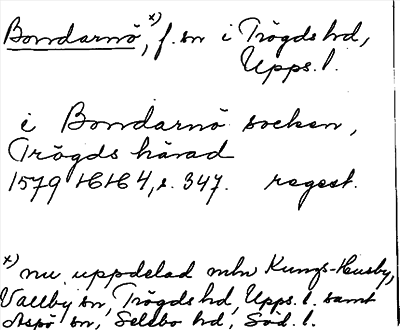 Bondarnö x), f. sn i Trögds hd,
Upps. l.
i Bondarnö socken,
Trögds härad
1579 HH 4, s. 347. regest.
x) nu uppdelad mln Kungs-Husby,
Vallby sn, Trögds hd, Upps. l. samt
Aspö sn, Selebo hd, Söd. l.